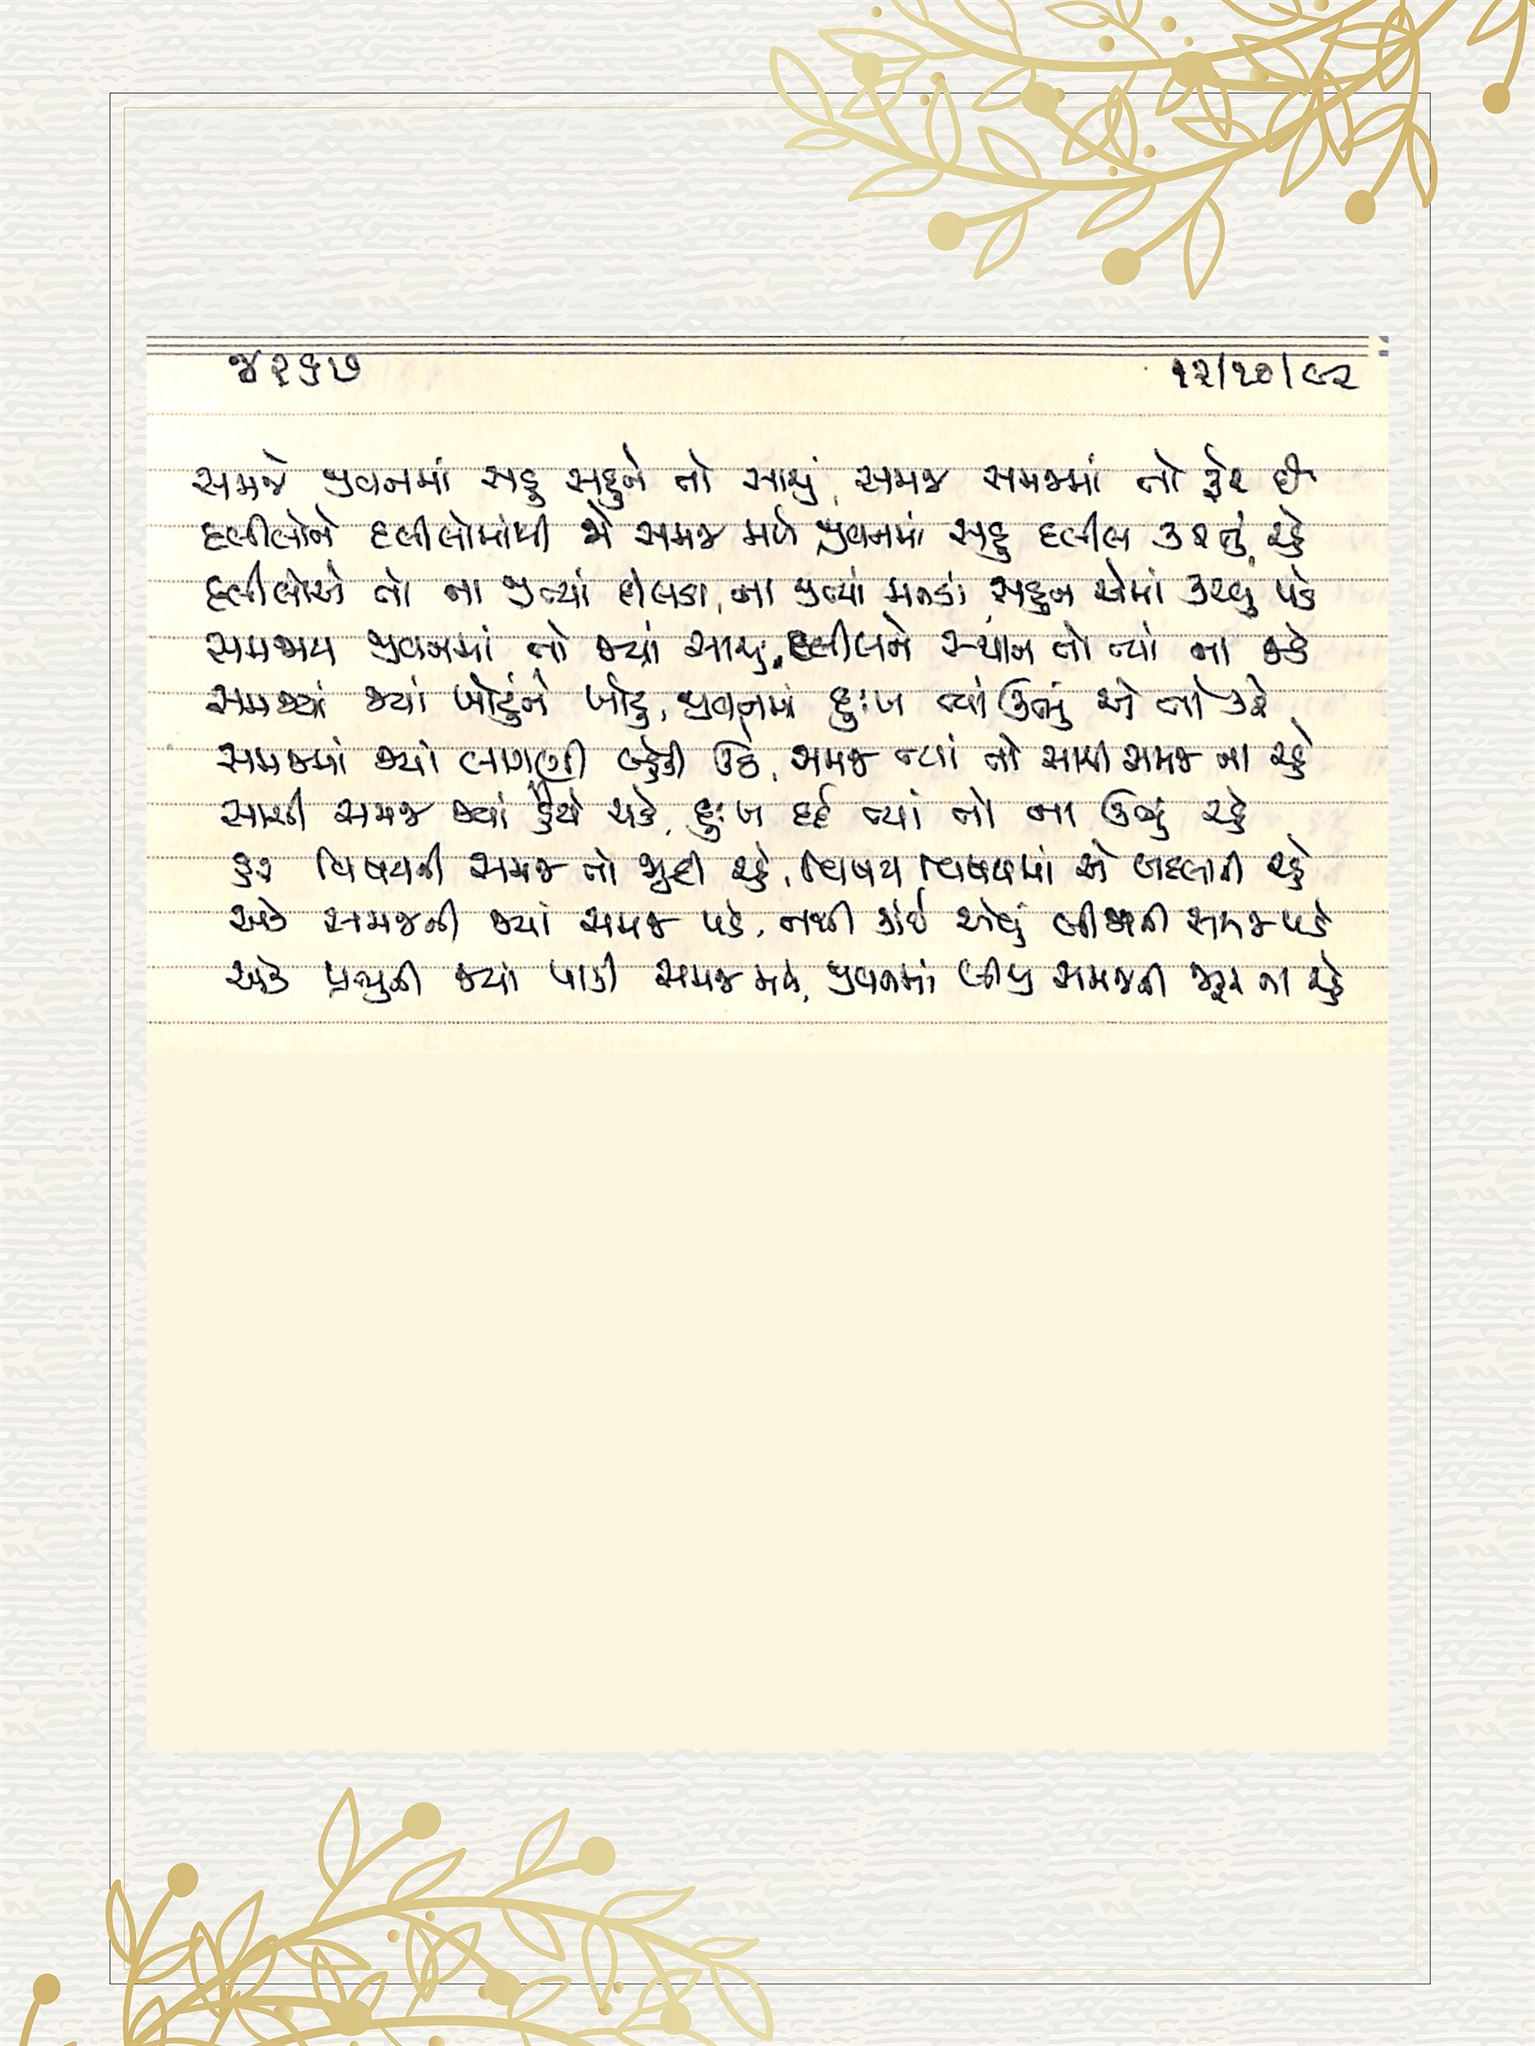 ૪૨૬૭ ૧૨/૧૦/૯૨
સમજે જીવનમાં સહુ સહુને તો સાચું, સમજ સમજમાં તો ફેર છે
દલીલોને દલીલોમાંથી જો સમજ મળે જીવનમાં સહુ દલીલ કરતું રહે
દલીલોએ તો ના જીત્યાં હૈયા, ના જીત્યાં મનડાં, સહુને એમાં કરવું પડે
સમજાય જીવનમાં તો જ્યાં સાચું, દલીલને સ્થાન તો ત્યાં ના જડે
સમજ્યાં જ્યાં ખોટુંને ખોટુ, જીવનમાં દુઃખ ત્યાં ઊભું એ તો કરે
સમજમાં જ્યાં લાગણી બ્હેકી ઊઠે, સમજ ત્યાં તો સાચી સમજ ના રહે
સાચી સમજ જ્યાં હૈયે ચડે, દુઃખ દર્દ ત્યાં તો ના ઊભું રહે
હર વિષયની સમજ તો જુદી રહે, વિષય વિષયમાં એ બદલાતી રહે
એક સમજની જ્યાં સમજ પડે, નથી કાંઈ એવું બીજાની સમજ પડે
એક પ્રભુની જ્યાં પાકી સમજ મળે, જીવનમાં બીજી સમજની જરૂર ના રહે